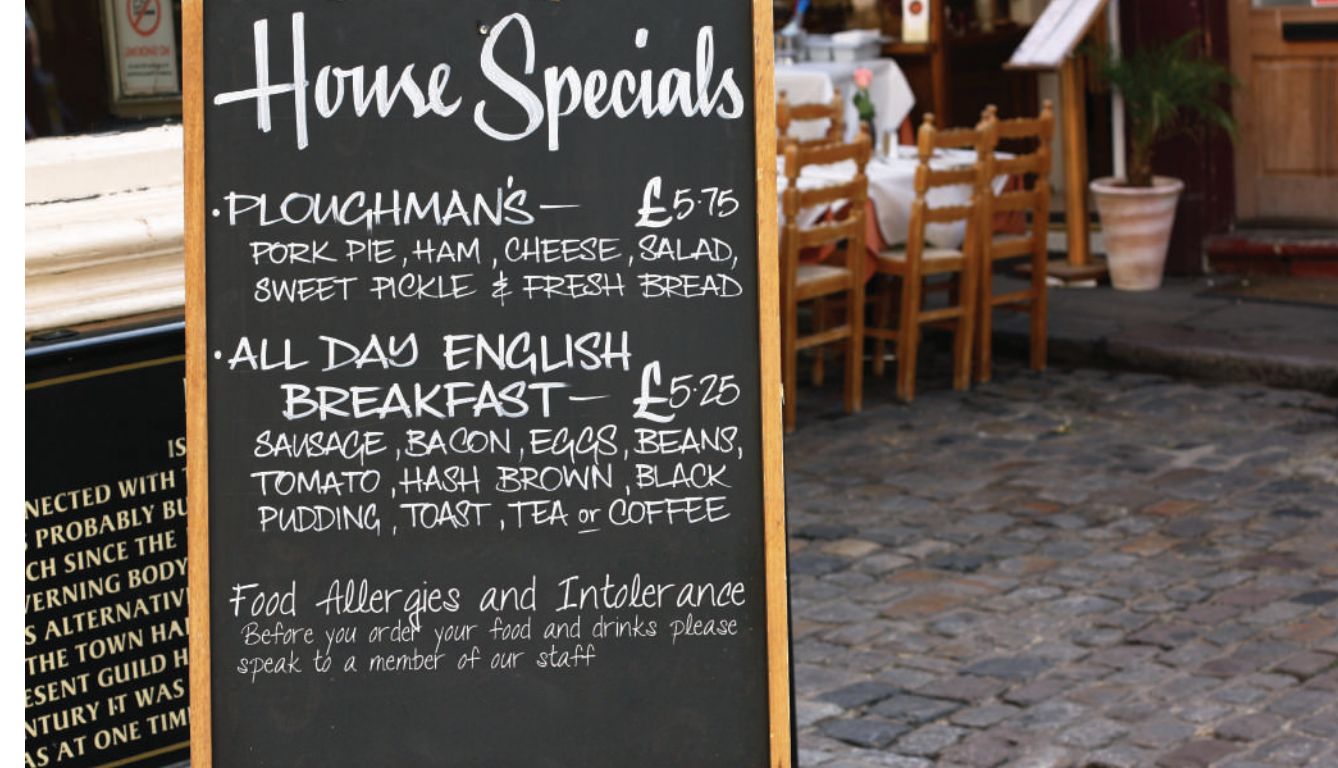 House Specials
·PLOUGHMAN'S — £5·75
PORK PIE, HAM, CHEESE, SALAD,
SWEET PICKLE & FRESH BREAD
·ALL DAY ENGLISH
BREAKFAST — £5·25
SAUSAGE, BACON, EGGS, BEANS,
TOMATO, HASH BROWN, BLACK
PUDDING, TOAST, TEA or COFFEE
Food Allergies and Intolerance
Before you order your food and drinks please
speak to a member of our staff
IS
NECTED WITH
PROBABLY BU
CH SINCE THE
VERNING BODY
S ALTERNATIV
THE TOWN HA
ESENT GUILD H
NTURY IT WAS
AS AT ONE TIM